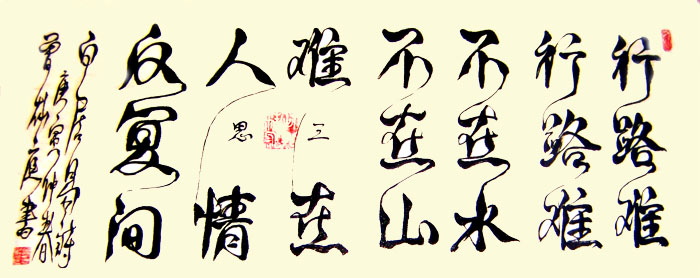 行路难
行路难
不在水
不在山
难在
三思
人情
反复间
白居易诗
庚寅仲春
书